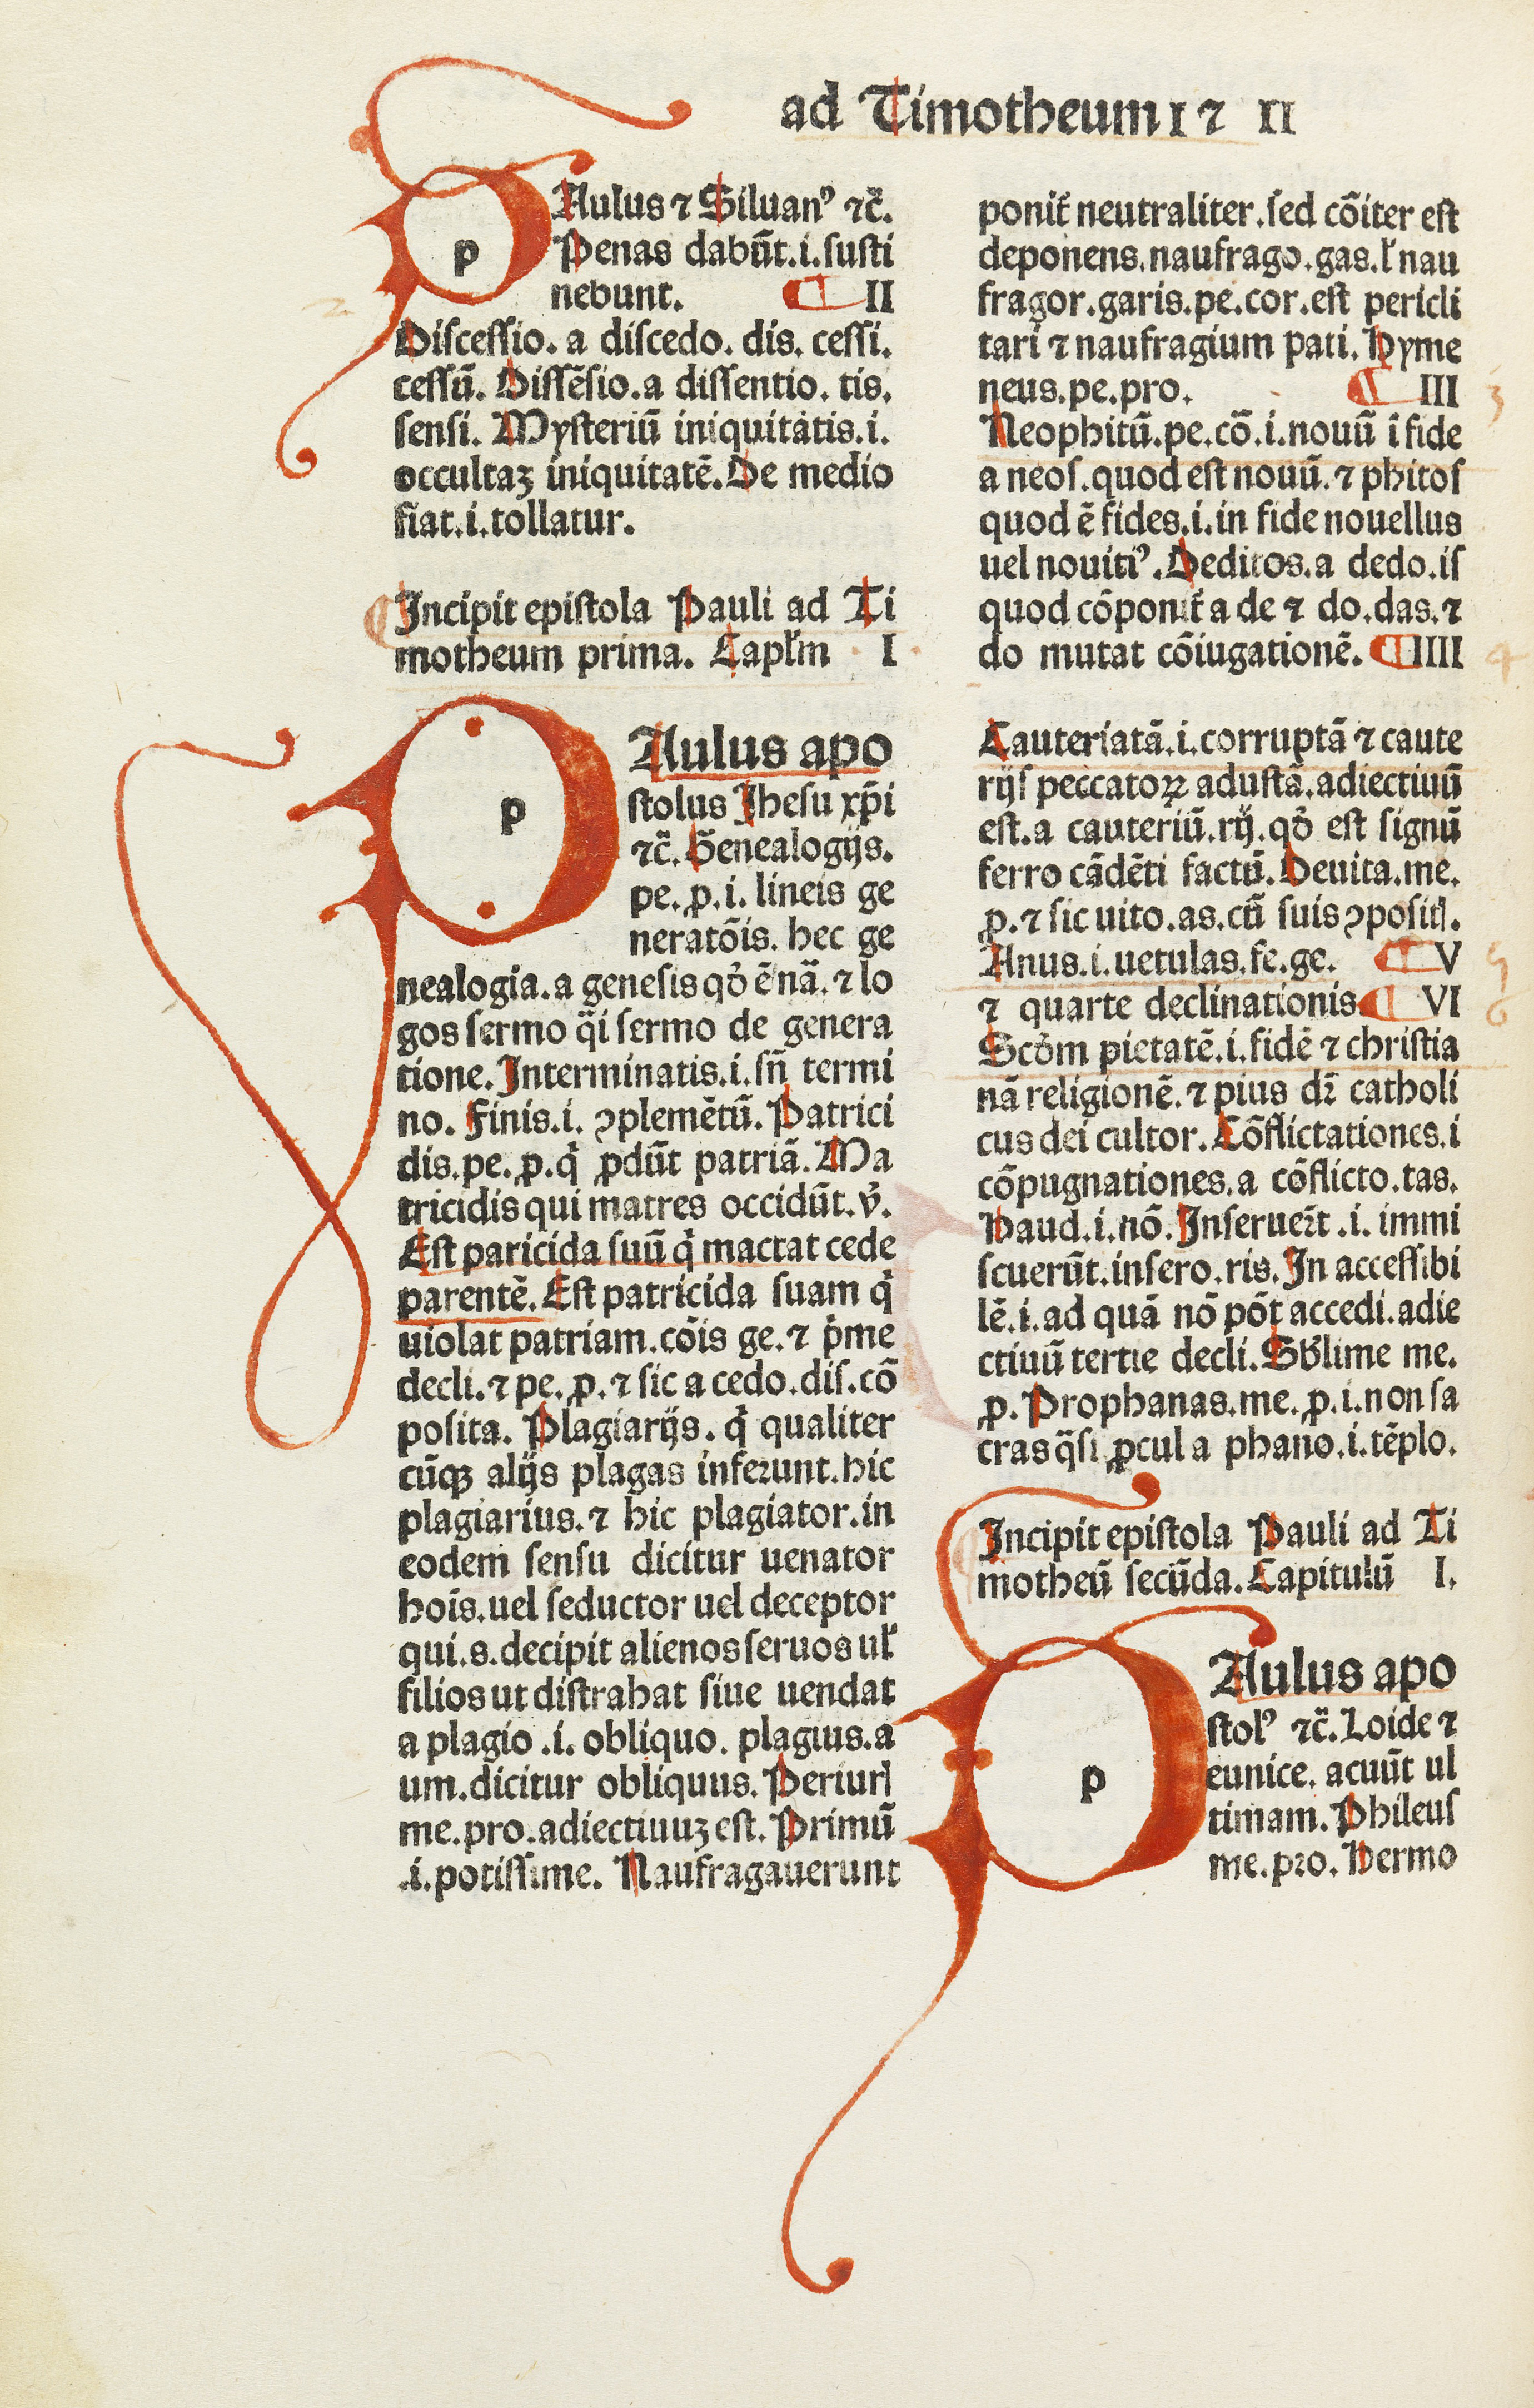 ad Timotheum I ⁊ II
PAulus ⁊ Siluanꝰ ⁊c̃.
Penas dabũt.i.susti
nebunt. ¶ II
Discessio. a discedo. dis. cessi.
cessũ. Dissẽsio.a dissentio. tis.
sensi. Mysteriũ iniquitatis.i.
occultaȝ iniquitatẽ. De medio
fiat.i.tollatur.
¶ Incipit epistola Pauli ad Ti
motheum prima. Capłm I
PAulus apo
stolus Jhesu xp̃i
⁊c̃. Genealogijs.
pe. ꝓ.i. lineis ge
neratõis. hec ge
nealogia.a genesis qð ẽ nã. ⁊ lo
gos sermo q̃i sermo de genera
tione. Interminatis.i.sñ termi
no. Finis.i. ꝯplemẽtũ. Patrici
dis.pe. ꝓ.q̇ ꝓdũt patriã. Ma
tricidis qui matres occidũt. v̓.
Est paricida suũ q̇ mactat cede
parentẽ. Est patricida suam q̇
uiolat patriam.cõis ge. ⁊ p̓me
decli. ⁊ pe. ꝓ. ⁊ sic a cedo.dis.cõ
posita. Plagiarijs. q̇ qualiter
cũqꝫ alijs plagas inferunt.hic
plagiarius. ⁊ hic plagiator.in
eodem sensu dicitur uenator
hoĩs.uel seductor uel deceptor
qui.s.decipit alienos seruos uł
filios ut distrahat siue uendat
a plagio .i. obliquo. plagius.a
um.dicitur obliquus. Periurꝭ
me.pro.adiectiuuȝ est. Primũ
.i.potissime. Naufragauerunt
ponit̃ neutraliter.sed cõiter est
deponens.naufrago.gas.ł nau
fragor.garis.pe.cor.est pericli
tari ⁊ naufragium pati. Hyme
neus.pe.pro. ¶ III 3
Neophitũ.pe.cõ.i.nouũ ĩ fide
a neos.quod est nouũ. ⁊ phitos
quod ẽ fides.i.in fide nouellus
uel nouitiꝰ. Deditos.a dedo.is
quod cõponit̃ a de ⁊ do.das. ⁊
do mutat cõiugationẽ. ¶ IIII 4
Cauteriatã.i.corruptã ⁊ caute
rijs peccatoꝝ adustã.adiectiuũ
est.a cauteriũ.rij.qð est signũ
ferro cãdẽti factũ. Deuita.me.
ꝓ. ⁊ sic uito.as.cũ suis ꝯpositꝭ.
Anus.i.uetulas.fe.ge. ¶ V 5
⁊ quarte declinationis ¶ VI 6
Scðm pietatẽ.i.fidẽ ⁊ christia
nã religionẽ. ⁊ pius dr̃ catholi
cus dei cultor. Cõflictationes.i
cõpugnationes.a cõflicto.tas.
Haud.i.nõ. Inseruer̃t .i. immi
scuerũt.insero.ris. In accessibi
lẽ.i.ad quã nõ põt accedi.adie
ctiuũ tertie decli. Sb̓lime me.
ꝓ. Prophanas.me. ꝓ.i.non sa
cras q̃si ꝓcul a phano.i.tẽplo.
Incipit epistola Pauli ad Ti
motheũ secũda. Capitulũ I.
PAulus apo
stolꝰ ⁊c̃. Loide ⁊
eunice. acuũt ul
timam. Phileus
me.pro. Hermo